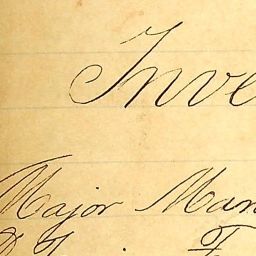 Inve
Major Man